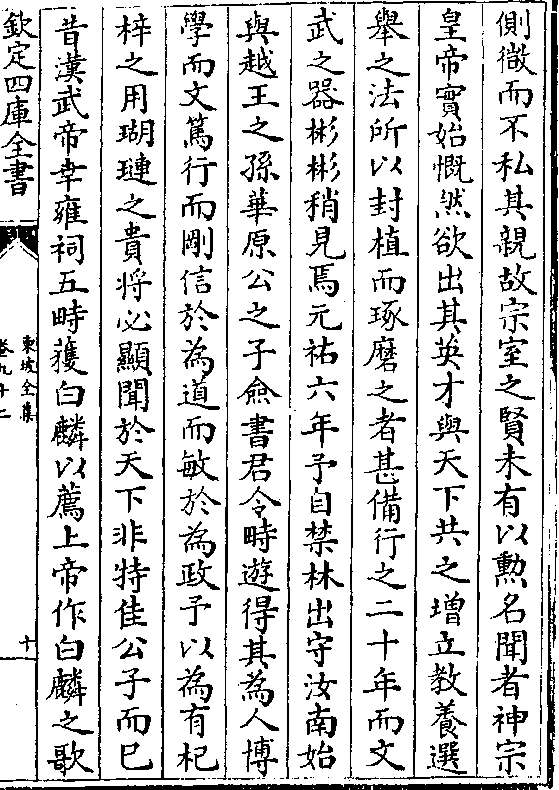 側微而不私其親故宗室之賢未有以勲名聞者神宗
皇帝實始慨然欲出其英才與天下共之増立教養選
舉之法所以封植而琢磨之者甚備行之二十年而文
武之器彬彬稍見焉元祐六年予自禁林出守汝南始
與越王之孫華原公之子僉書君令時遊得其為人博
學而文篤行而剛信於為道而敏於為政予以為有杞
梓之用瑚璉之貴将必顯聞於天下非特佳公子而已
昔漢武帝幸雍祠五畤獲白麟以薦上帝作白麟之歌
欽定四庫全書
東坡全集
卷九十二
十